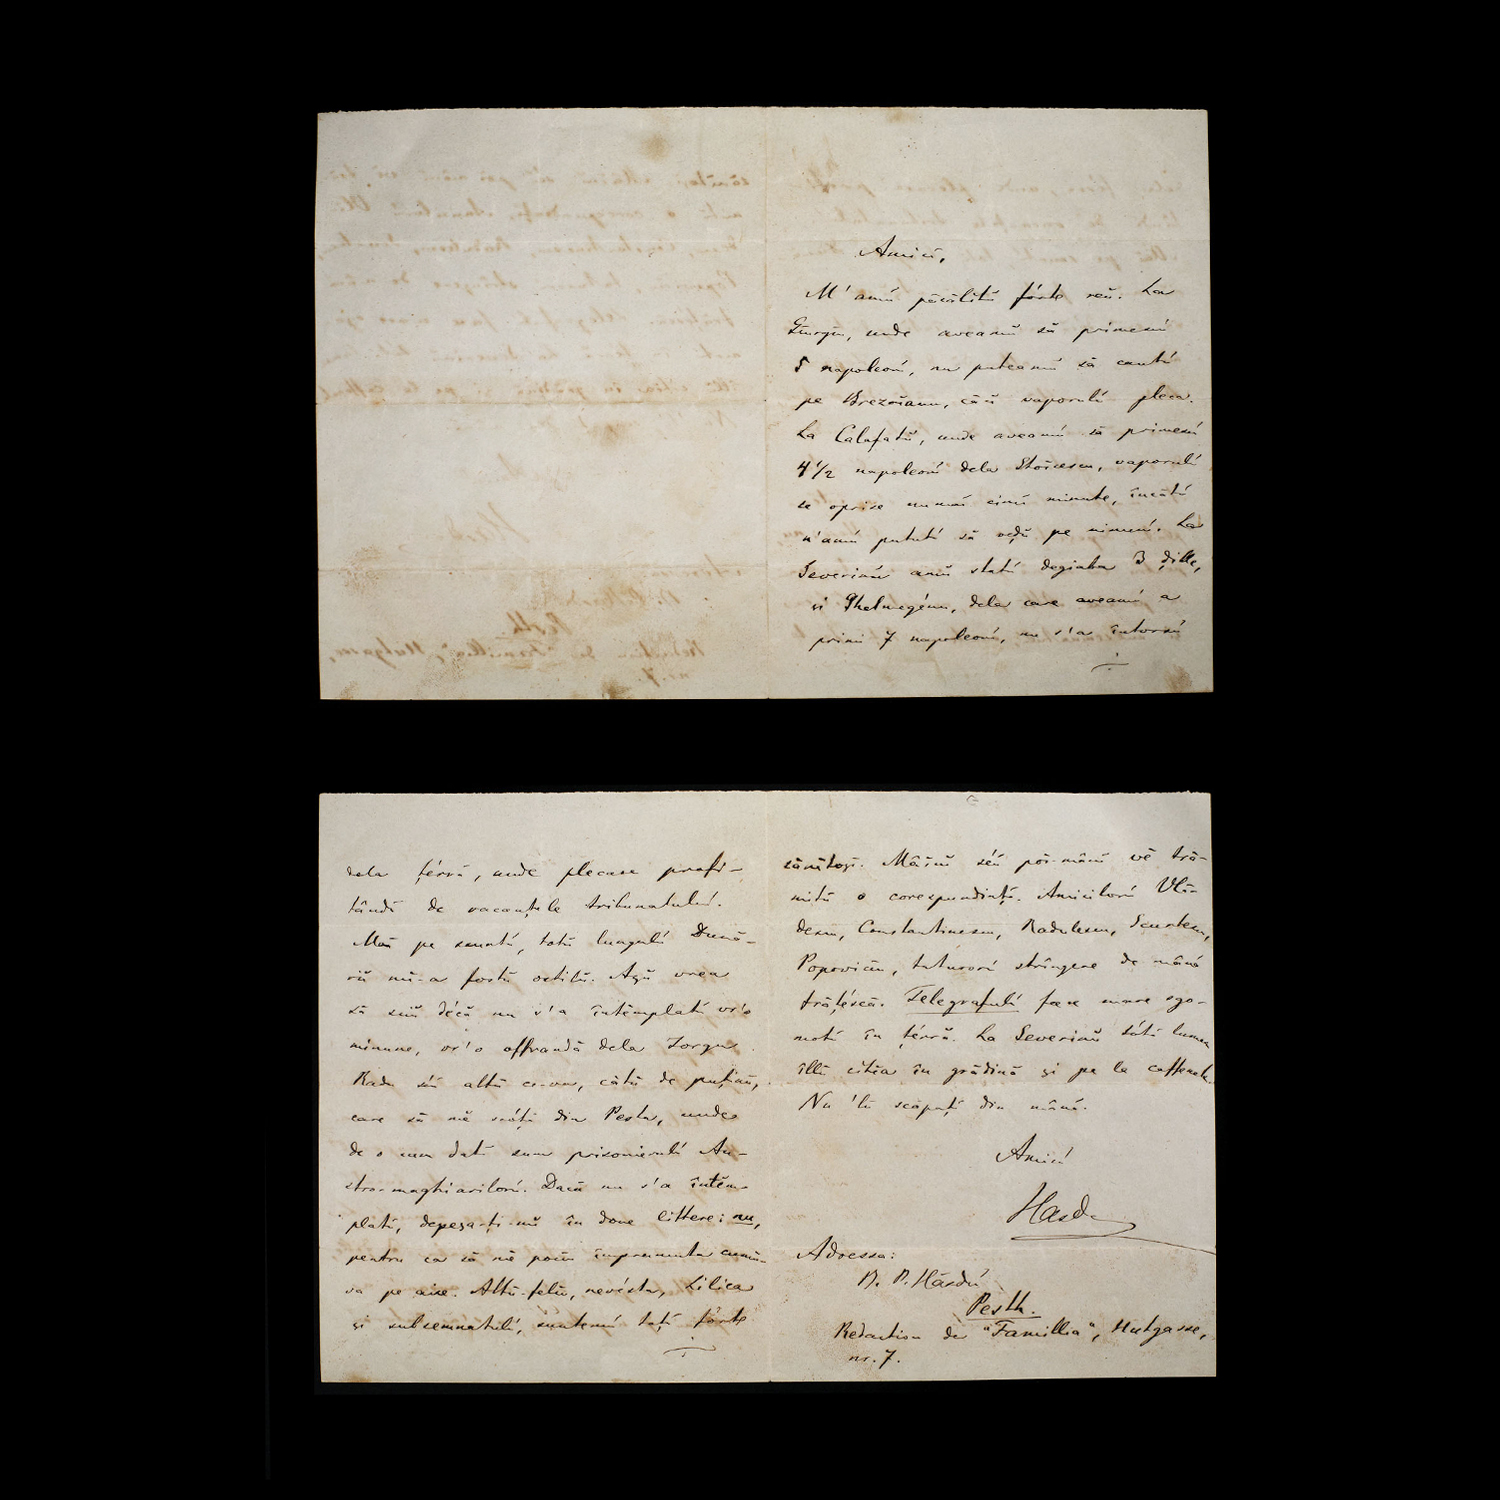 Amicĭ,
M'amŭ păcălitŭ fórte reŭ. La
Giurgiu, unde aveamŭ să primescŭ
5 napoleonĭ, nu puteamŭ să cautŭ
pe Brezoianu, căcĭ vaporulŭ pleca.
La Calafatŭ, unde aveamŭ să primescŭ
4 1/2 napoleonĭ dela Stoicescu, vaporulŭ
se oprise numaĭ cincĭ minute, încâtŭ
n'amŭ pututŭ să vĕdŭ pe nimenĭ. La
Severinŭ amŭ statŭ degiaba 3 ḑille,
și Ghelmegénu, dela care aveamŭ a
primi 7 napoleonĭ, nu s'a întorsŭ
dela țérră, unde plecase profi-
tândŭ de vacanțele tribunaluluĭ.
Maĭ pe scurtŭ, totŭ lungulŭ Dună-
riĭ mĭ-a fostŭ ostilŭ. Așŭ vrea
să sciŭ décă nu s'a întêmplatŭ vr'o
minune, vr'o offrandă dela Iorgu
Radu séŭ altŭ ce-va, câtŭ de puținŭ,
care să mĕ scóță din Pesta, unde
de o cam dată sum prisonierulŭ Au-
stro-maghiarilorŭ. Dacă nu s'a întêm-
platŭ, depeșați-mĭ în doue littere: nu,
pentru ca să mĕ pociŭ împrumuta cumu-
va pe aice. Altŭ-felŭ, nevésta, Lilica
și subsemnatulŭ, suntemŭ toțĭ fórte
sănătoșĭ. Mâĭne séŭ poĭ-mâne vĕ tră-
mitŭ o corespundință. Amicilorŭ Vlă-
descu, Constantinescu, Radulescu, Scurtescu,
Popoviciu, tuturorŭ strîngere de mână
frățéscă. Telegrafulŭ face mare sgo-
motŭ în țérră. La Severinŭ tótă lumea
îllŭ citia în grădină și pe la caffenele.
Nu 'lŭ scăpațĭ din mână.
Amicŭ
Hasdeu
Adressa:
B. P. Hăsdŭ
Pesth.
Redaction der "Familia", Hutgasse,
nr. 7.